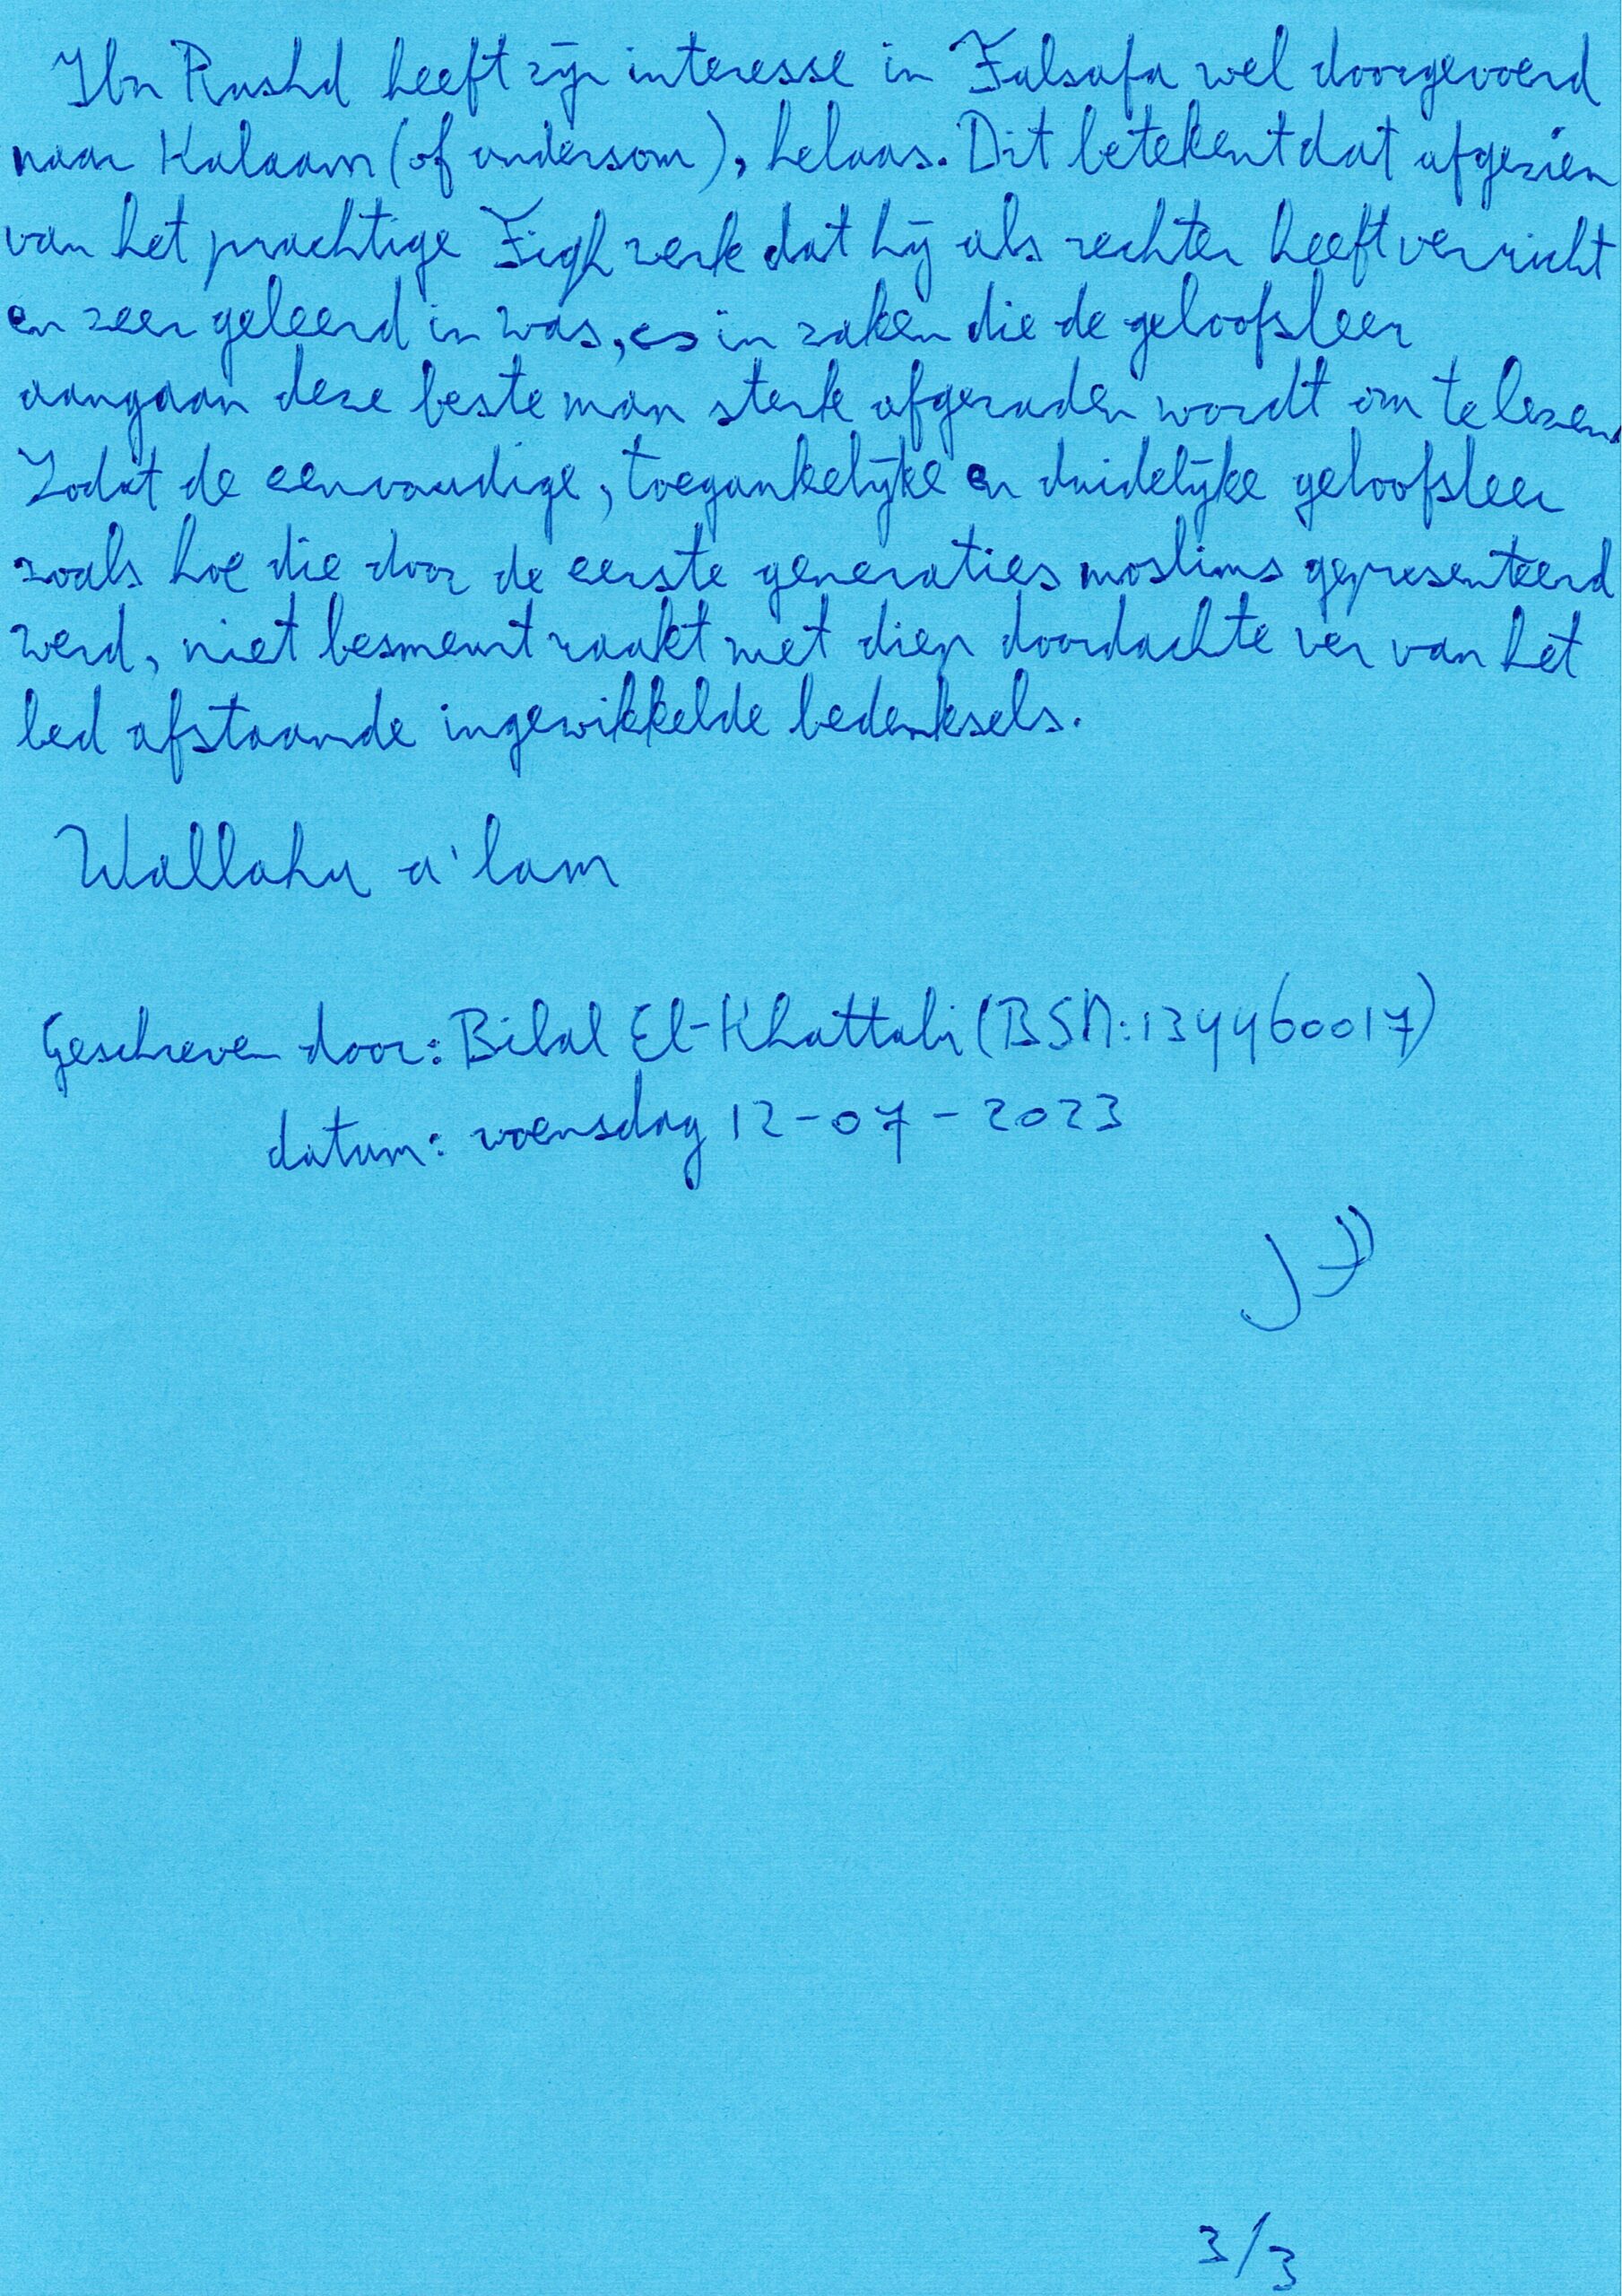 Ibn Rushd heeft zijn interesse in Falsafa wel doorgevoerd
naar Kalaam (of andersom), helaas. Dit betekent dat afgezien
van het prachtige Fiqh werk dat hij als rechter heeft verricht
en zeer geleerd in was, es in zaken die de geloofsleer
aangaan deze beste man sterk afgeraden wordt om te lezen.
Zodat de eenvoudige, toegankelijke en duidelijke geloofsleer
zoals hoe die door de eerste generaties moslims gepresenteerd
werd, niet besmeurt raakt met diep doordachte ver van het
bed afstaande ingewikkelde bedenksels.
Wallahu a'lam
Geschreven door: Bilal El-Khattabi (BSN: 134460017)
datum: woensdag 12-07-2023
3/3